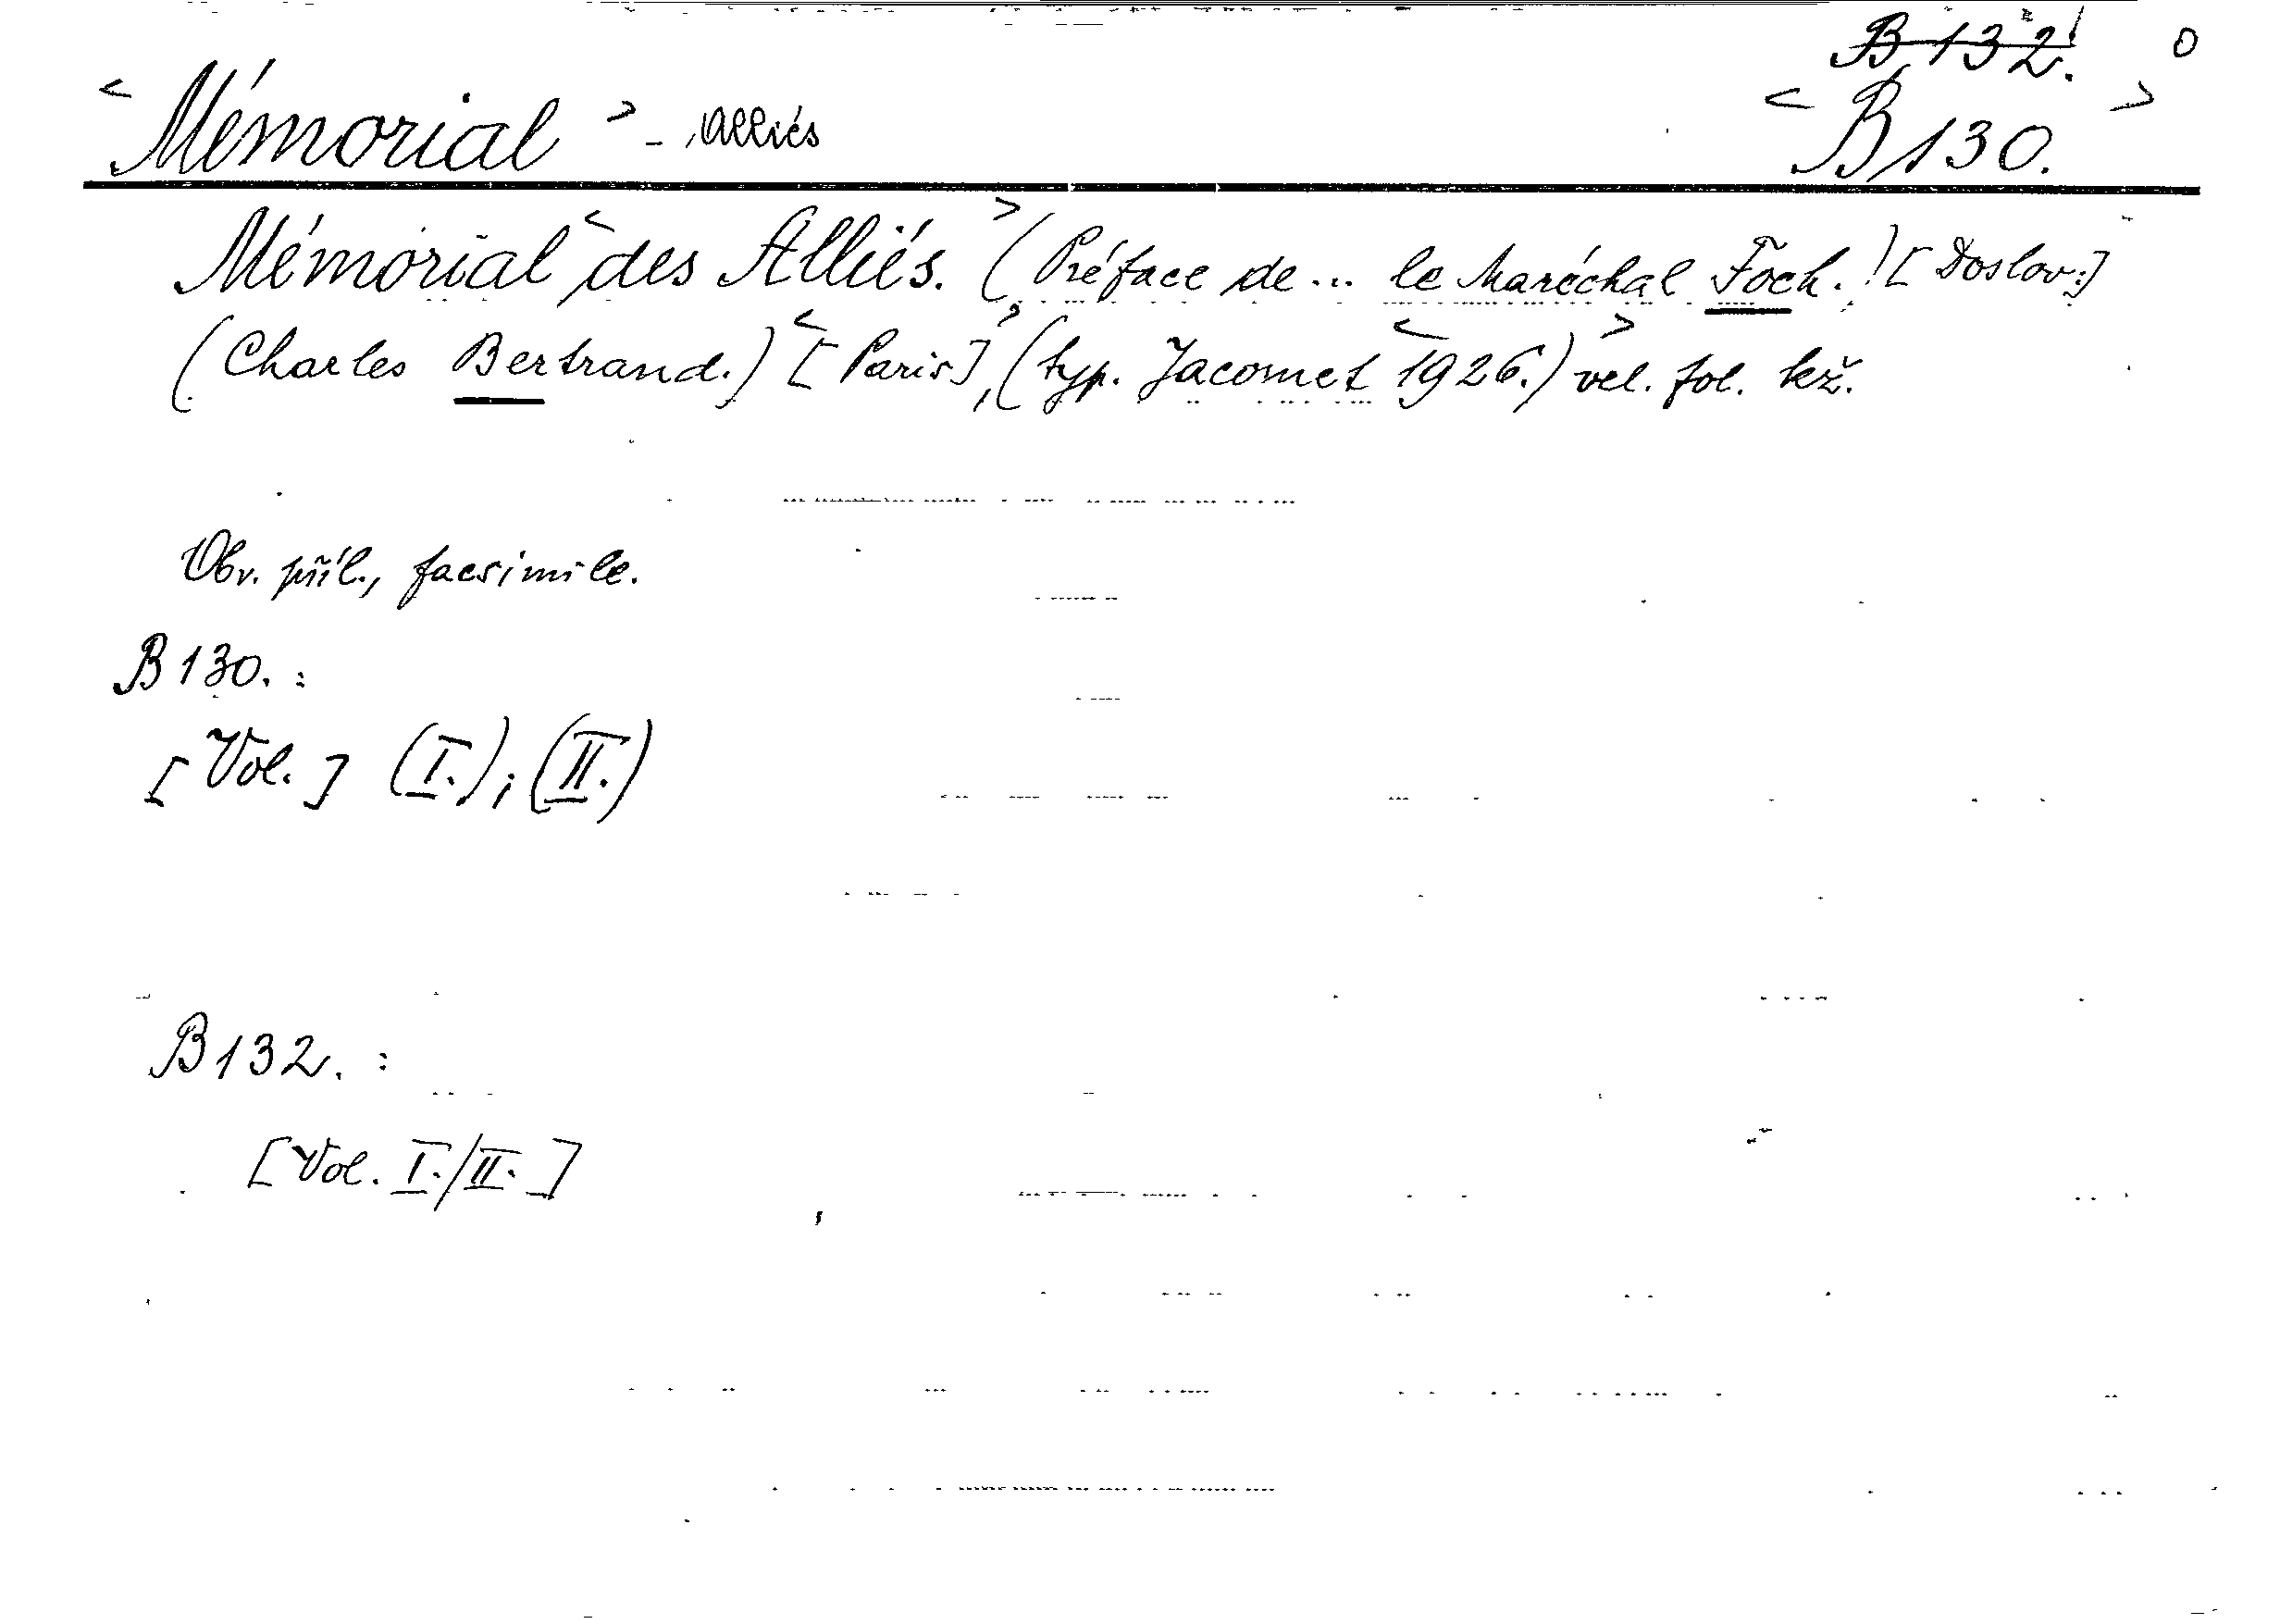 B 132. 0
< Mémorial > - Alliés < B 130. >
Mémorial < des Alliés. > (Préface de... le Maréchal Foch.) [Doslov:]
(Charles Bertrand.) < [Paris], > (typ. Jacomet < 1926. >) vel. fol. kž.
Obr. příl., facsimile.
B 130. :
[Vol.] (I.); (II.)
B 132. :
[Vol. I./II.]